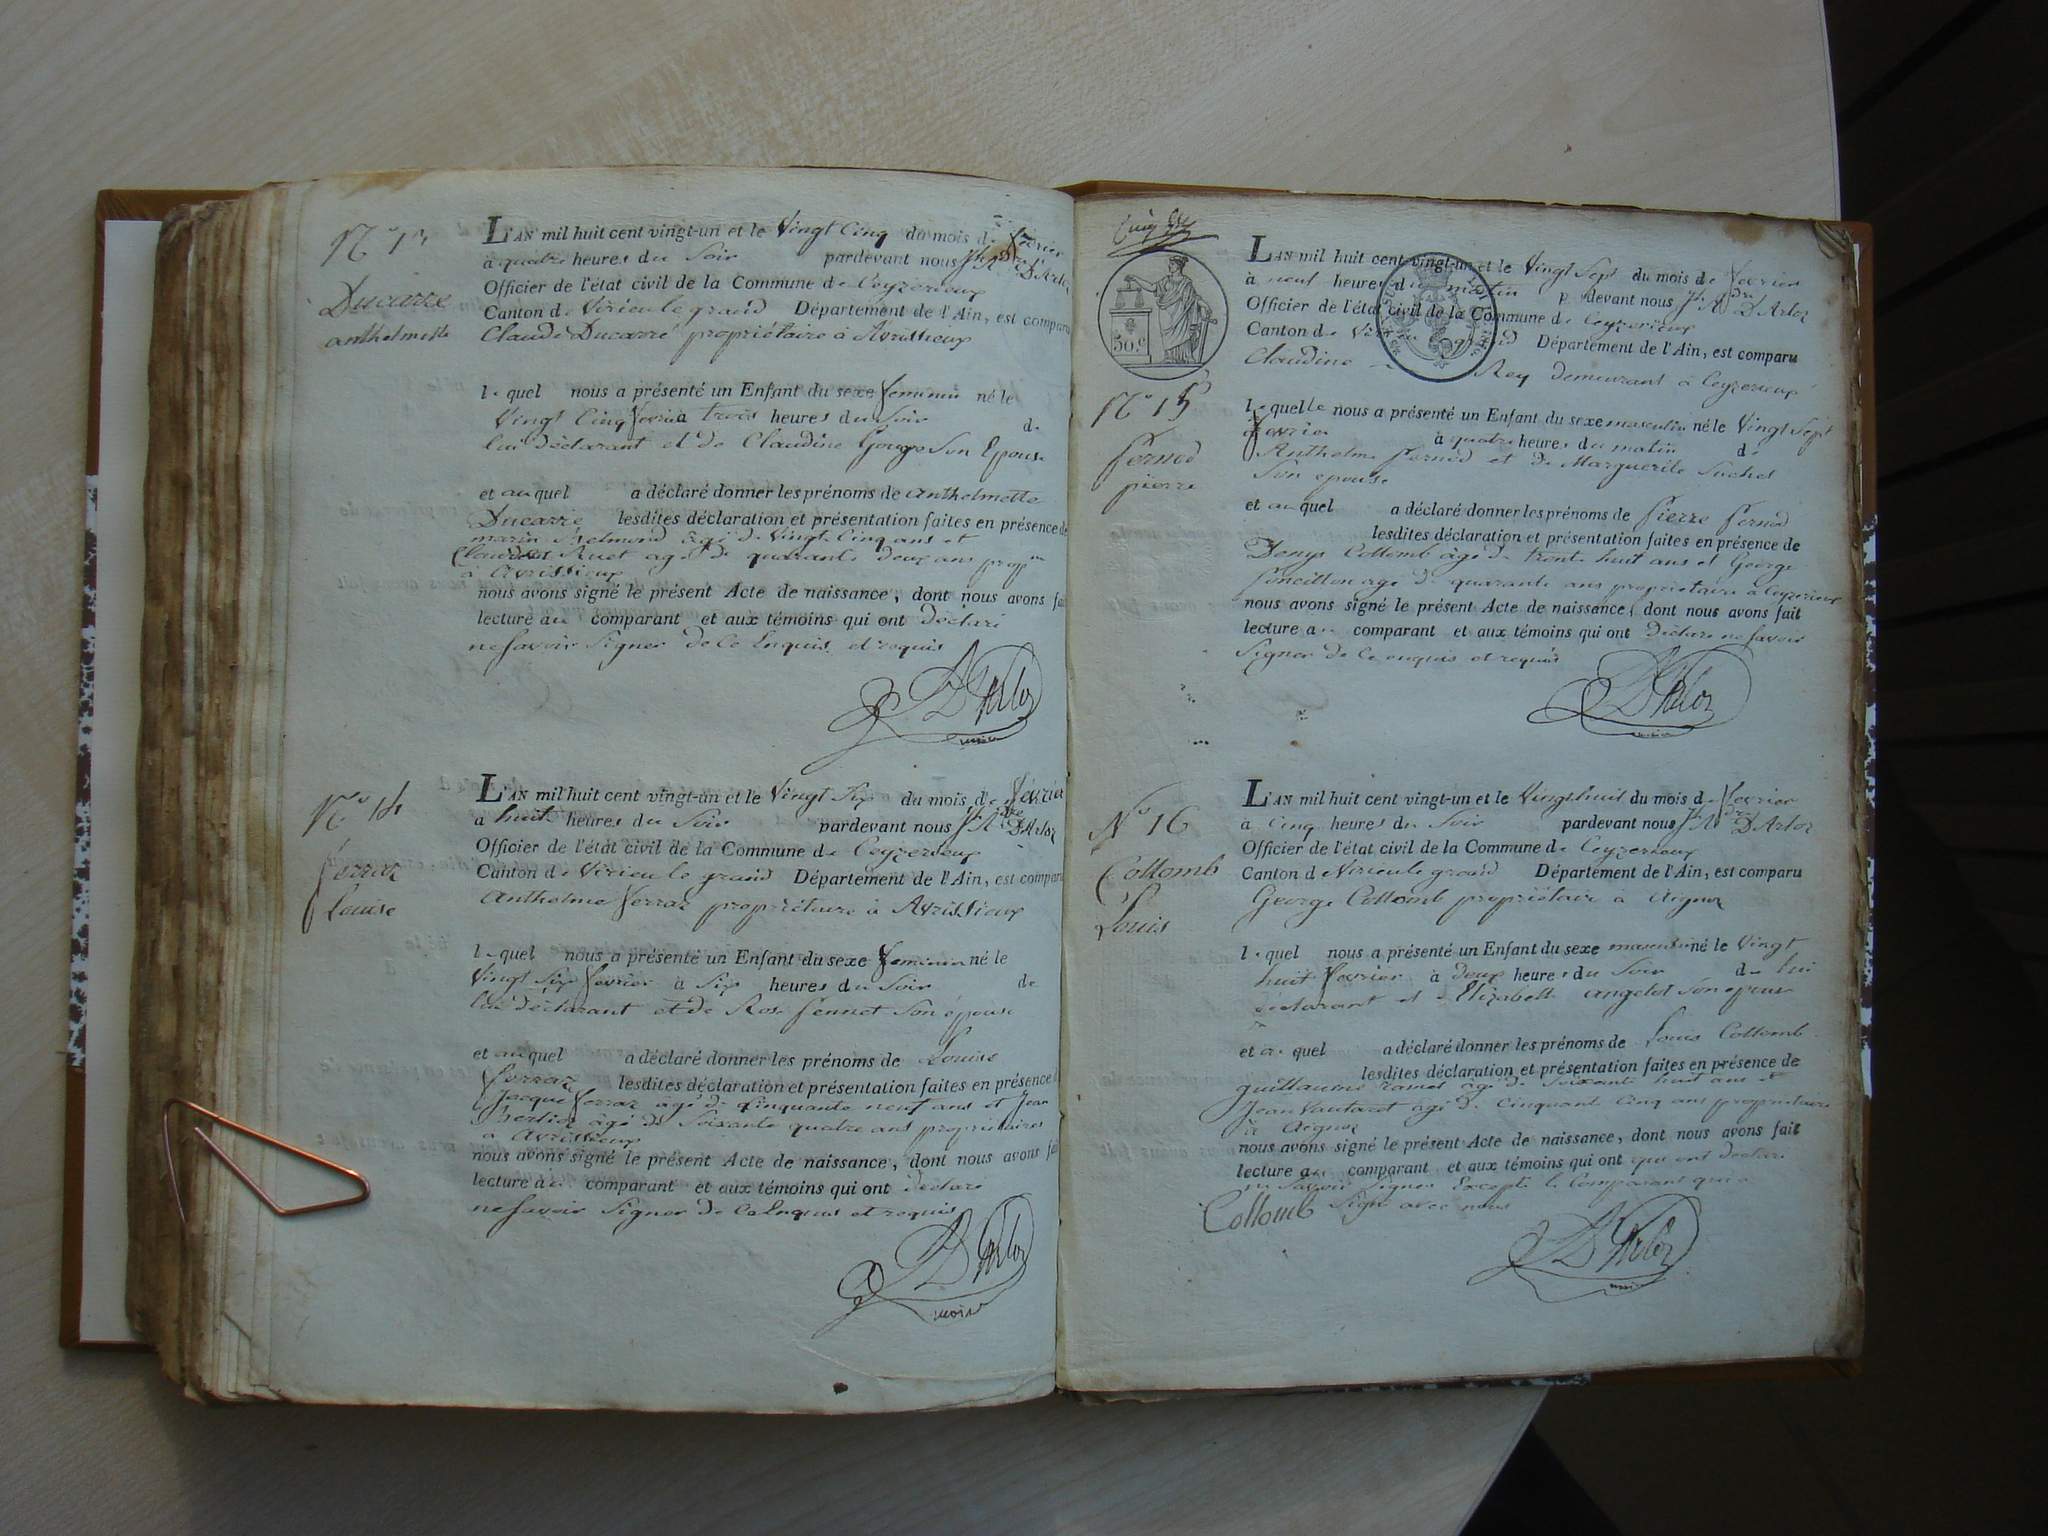 N.° 13
Ducarre
anthelmette
L'AN mil huit cent vingt-un et le Vingt Cinq du mois de février
à quatre heures du Soir pardevant nous D'Arloz
Officier de l'état civil de la Commune de Ceyzerieux
Canton de Virieu le grand Département de l'Ain, est comparu
Claude Ducarre propriétaire à Avrissieux
lequel nous a présenté un Enfant du sexe feminin né le
Vingt Cinq fevrier à trois heures du Soir de
lui déclarant et de Claudine Gouge Son Epouse
et auquel a déclaré donner les prénoms de anthelmette
Ducarre lesdites déclaration et présentation faites en présence de
marin âgé de Vingt Cinq ans et
Claude Ruet agé de quarante deux ans prop.re
à Avrissieux
nous avons signé le présent Acte de naissance, dont nous avons fait
lecture au comparant et aux témoins qui ont déclaré
ne Savoir Signer de Ce Enquis et requis
D'Arloz
maire
N.° 14
ferraz
Louise
L'AN mil huit cent vingt-un et le Vingt Six du mois de février
à huit heures du Soir pardevant nous D'Arloz
Officier de l'état civil de la Commune de Ceyzerieux
Canton de Virieu le grand Département de l'Ain, est comparu
Anthelme ferraz propriétaire à Avrissieux
lequel nous a présenté un Enfant du sexe feminin né le
Vingt Six fevrier à Six heures du Soir de
lui déclarant et de Rose fennet Son épouse
et auquel a déclaré donner les prénoms de Louise
ferraz lesdites déclaration et présentation faites en présence de
Jacque ferraz âgé de Cinquante neuf ans et Jean
Berlioz âgé de Soixante quatre ans propriétaires
à Avrissieux
nous avons signé le présent Acte de naissance, dont nous avons fait
lecture au comparant et aux témoins qui ont déclaré
ne Savoir Signer de Ce Enquis et requis
D'Arloz
maire
50.c
N.° 15
fernod
pierre
L'AN mil huit cent vingt-un et le Vingt Sept du mois de fevrier
à neuf heures du matin pardevant nous D'Arloz
Officier de l'état civil de la Commune de Ceyzerieux
Canton de Virieu le grand Département de l'Ain, est comparu
Claudine Rey demeurant à Ceyzerieux
lequelle nous a présenté un Enfant du sexe masculin né le Vingt Sept
fevrier à quatre heures du matin de
Anthelme fernod et de Marguerite Suchet
Son epouse
et auquel a déclaré donner les prénoms de pierre fernod
lesdites déclaration et présentation faites en présence de
Denys Collomb âgé de trente huit ans et George
poncillon agé de quarante ans propriétaire à Ceyzerieux
nous avons signé le présent Acte de naissance, dont nous avons fait
lecture au comparant et aux témoins qui ont Déclaré ne Savoir
Signer de Ce enquis et requis
D'Arloz
maire
N.° 16
Collomb
Louis
L'AN mil huit cent vingt-un et le Vingt huit du mois de fevrier
à Cinq heures du Soir pardevant nous D'Arloz
Officier de l'état civil de la Commune de Ceyzerieux
Canton de Virieu le grand Département de l'Ain, est comparu
George Collomb propriétaire à Aignoz
lequel nous a présenté un Enfant du sexe masculin né le Vingt
huit fevrier à Deux heures du Soir de lui
déclarant et d'Elizabeth angelot Son epouse
et auquel a déclaré donner les prénoms de Louis Collomb
lesdites déclaration et présentation faites en présence de
guillaume ramel âgé de Soixante huit ans et
Jean Vautaret âgé de Cinquante Cinq ans propriétaire
à Aignoz
nous avons signé le présent Acte de naissance, dont nous avons fait
lecture au comparant et aux témoins qui ont qui ont declaré
ne Savoir Signer Excepté le Comparant qui a
Collomb Signé avec nous
D'Arloz
maire